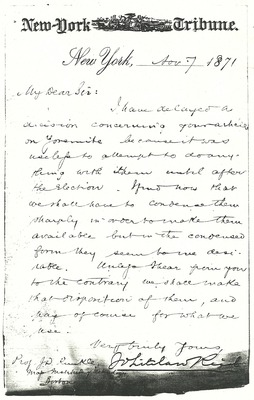 New-York Tribune.
New York, Nov 7 1871
My Dear Sir:
I have delayed a
decision concerning your articles
on Yosemite because it was
useless to attempt to do any-
thing with them until after
the Election. I find now that
we shall have to condense them
sharply in order to make them
available but in the condensed
form they seem to me desi-
rable. Unless I hear from you
to the contrary we shall make
that disposition of them, and
pay of course for what we
use.
Very truly Yours,
Whitelaw Reid
Prof J D
Boston